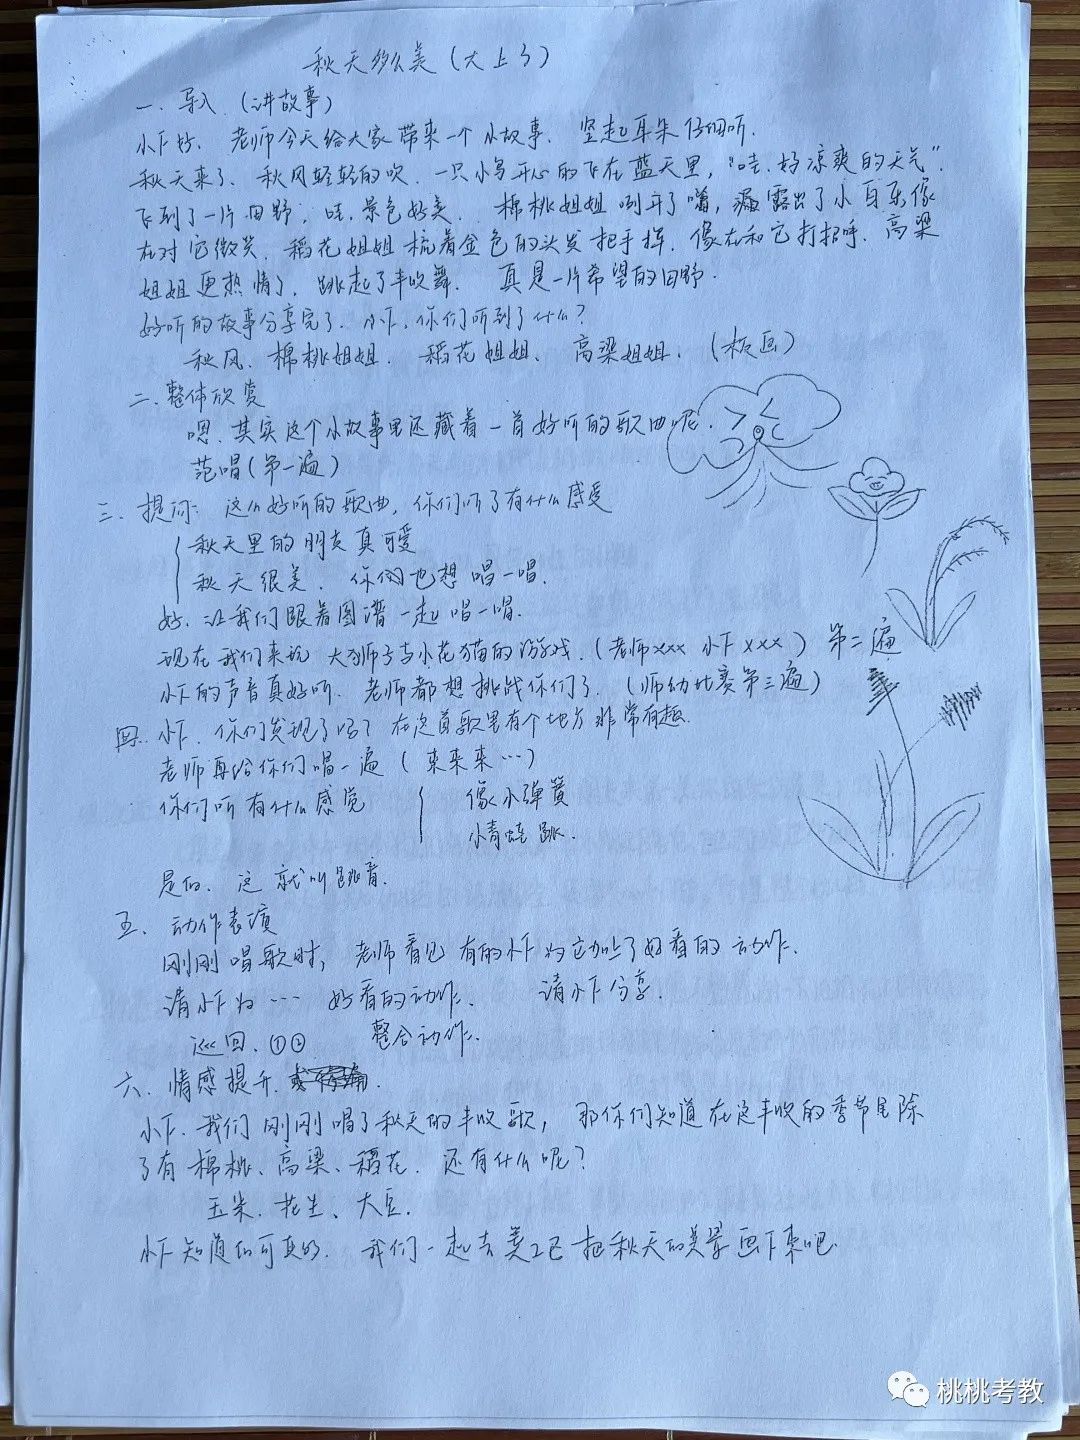 秋天多么美(大上3)
一、导入(讲故事)
小下好、老师今天给大家带来一个小故事、竖起耳朵仔细听.
秋天来了、秋风轻轻的吹、一只小鸟开心的飞在蓝天里,"哇、好凉爽的天气".
飞到了一片田野,哇、景色好美、棉桃姐姐咧开了嘴,露出了小白牙像
在对它微笑、稻花姐姐梳着金色的头发把手挥、像在和它打招呼、高梁
姐姐更热情了、跳起了丰收舞、真是一片希望的田野.
好听的故事分享完了、小下、你们听到了什么?
秋风、棉桃姐姐、稻花姐姐、高梁姐姐、(板画)
二、整体欣赏
嗯、其实这个小故事里还藏着一首好听的歌曲呢.
范唱(第一遍)
三、提问:这么好听的歌曲,你们听了有什么感受
秋天里的朋友真可爱
秋天很美、你们也想唱一唱.
好、让我们跟着图谱一起唱一唱.
现在我们来玩大狮子与小花猫的游戏、(老师xxx 小下xxx)第二遍
小下的声音真好听、老师都想挑战你们了、(师幼比赛第三遍)
四、小下、你们发现了吗?在这首歌里有个地方非常有趣.
老师再给你们唱一遍(来来来…)
你们听有什么感觉 像小弹簧
小青蛙跳.
是的、这就叫跳音.
五、动作表演
刚刚唱歌时,老师看见有的小下为它加上了好看的动作.
请小下为…好看的动作、请小下分享.
巡回、①② 整合动作.
六、情感提升.
小下、我们刚刚唱了秋天的丰收歌,那你们知道在这丰收的季节里除
了有棉桃、高梁、稻花、还有什么呢?
玉米、花生、大豆.
小下知道的可真多、我们一起去美工区把秋天的美景画下来吧.
桃桃考教